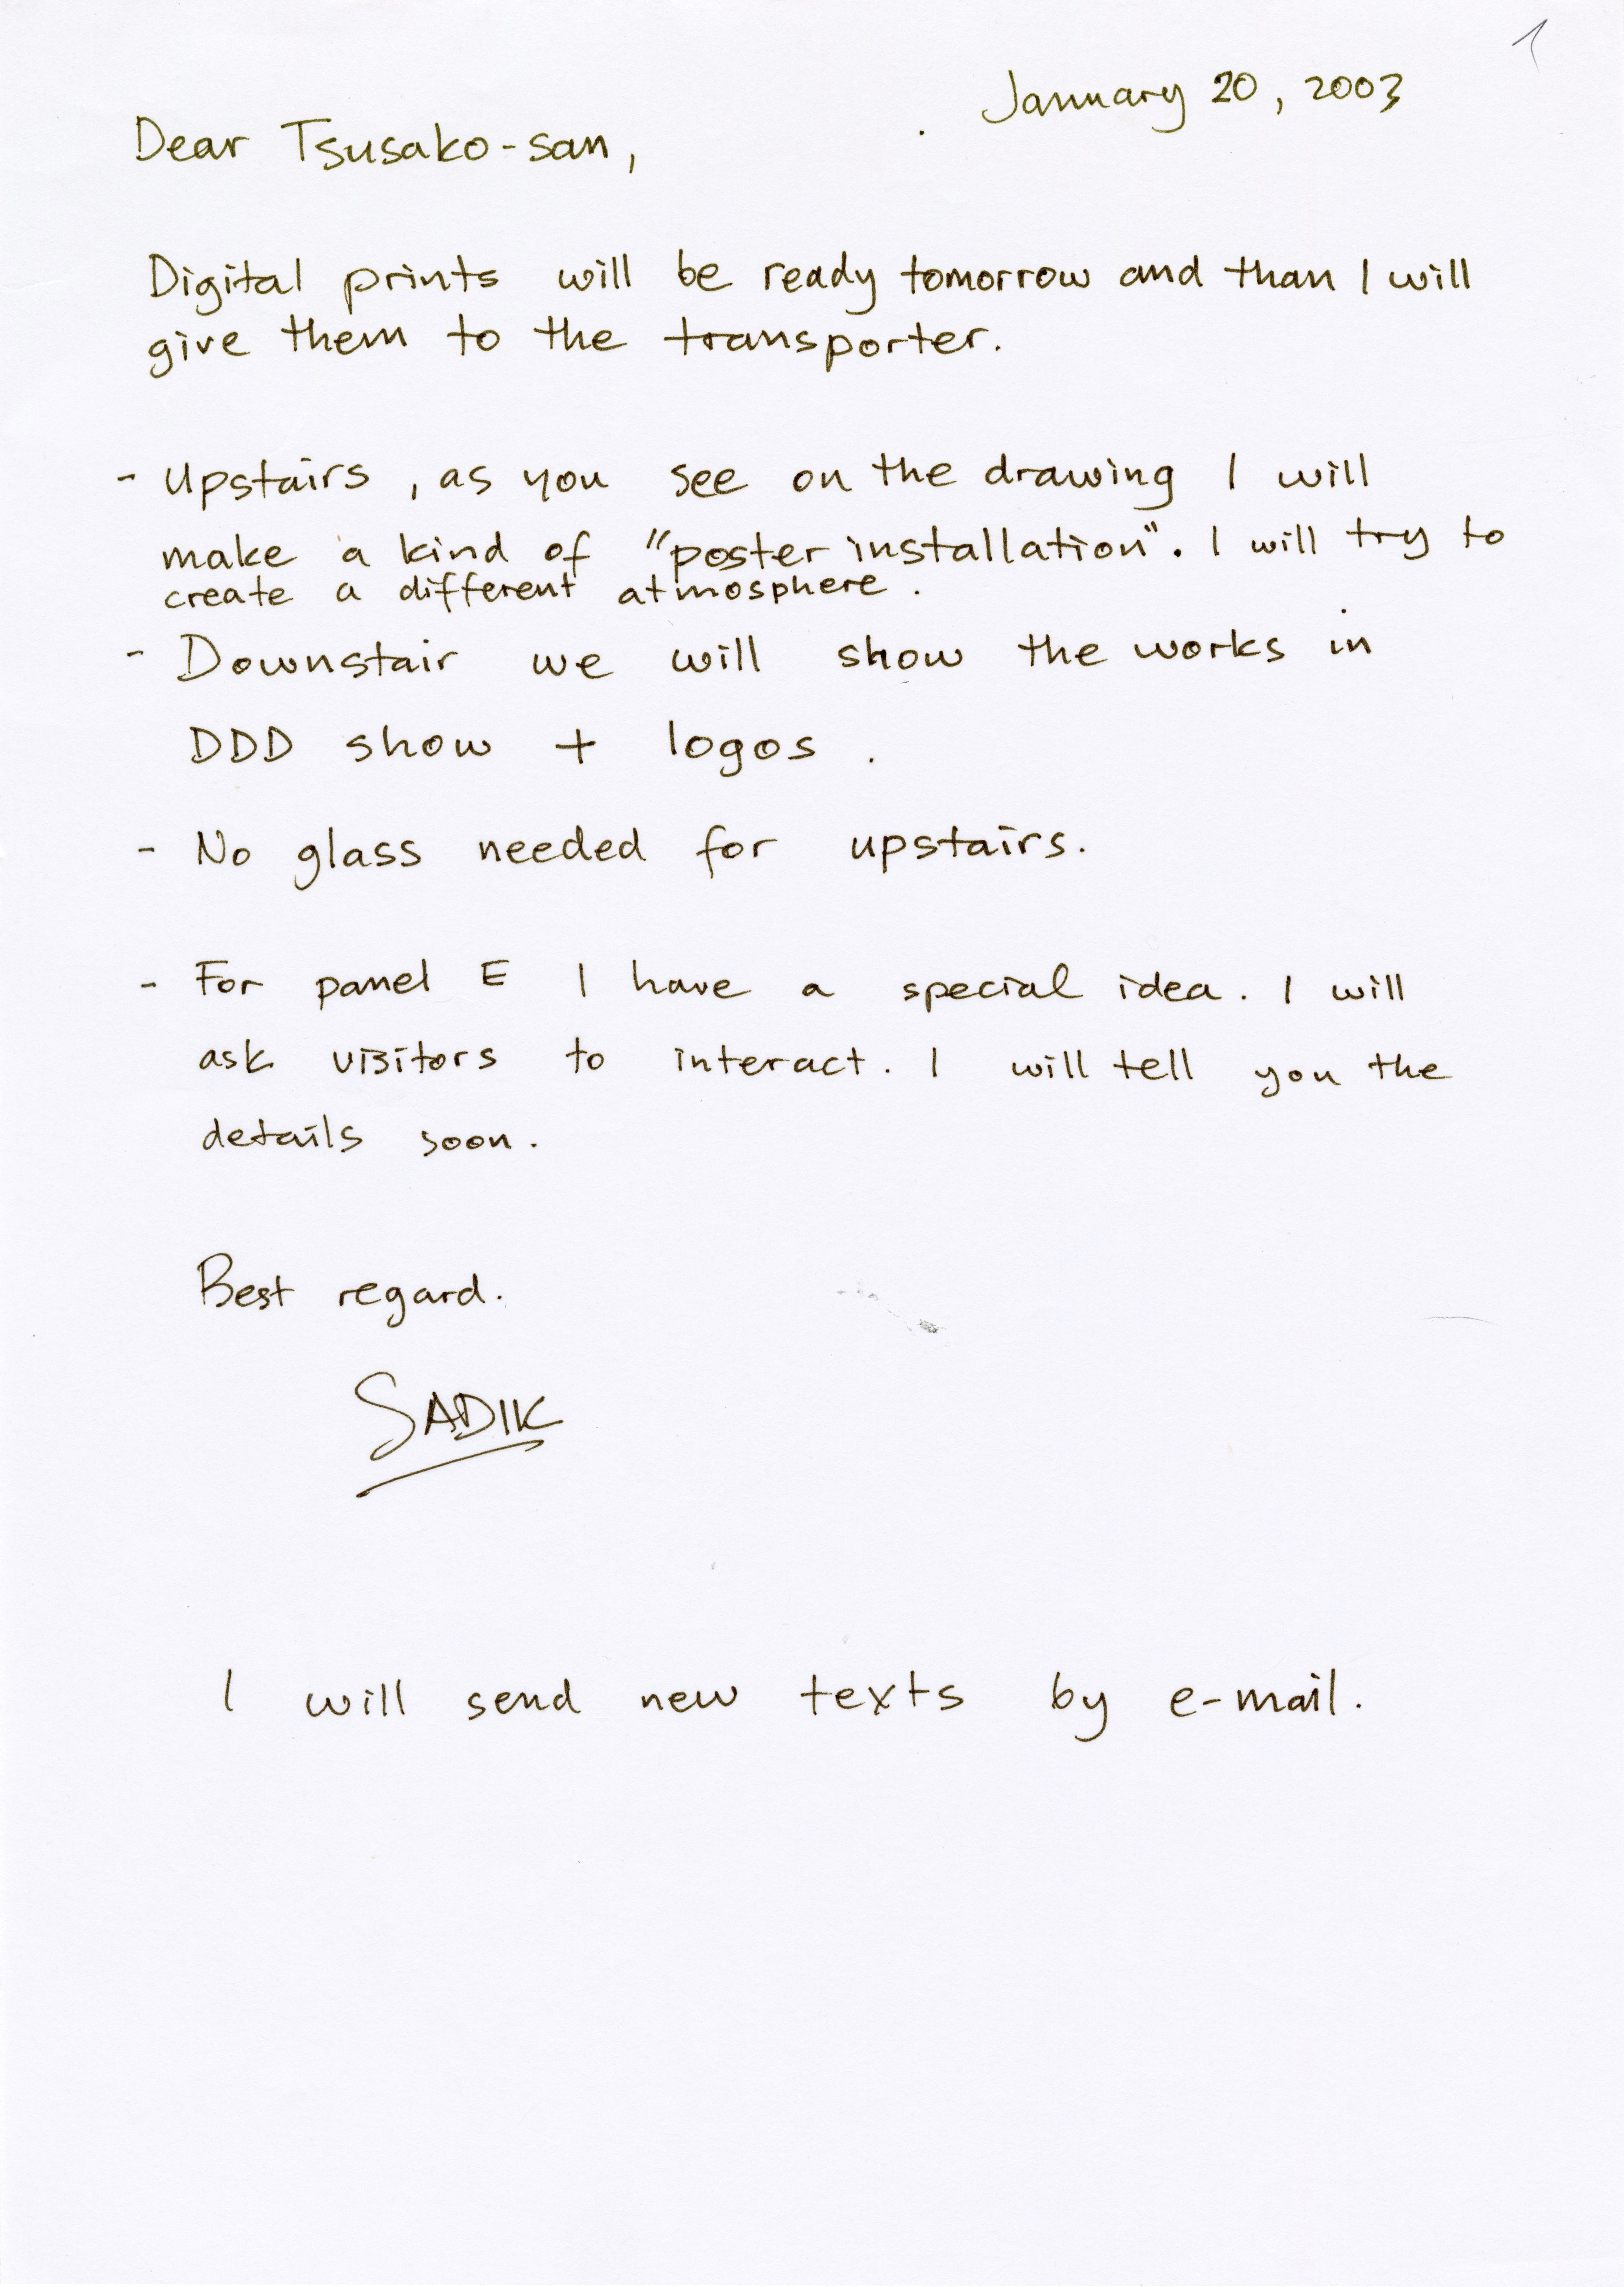 1
January 20, 2003
Dear Tsusako-san,
Digital prints will be ready tomorrow and than I will
give them to the transporter.
- Upstairs, as you see on the drawing I will
make a kind of "poster installation". I will try to
create a different atmosphere.
- Downstair we will show the works in
DDD show + logos.
- No glass needed for upstairs.
- For panel E I have a special idea. I will
ask visitors to interact. I will tell you the
details soon.
Best regard.
SADIK
I will send new texts by e-mail.